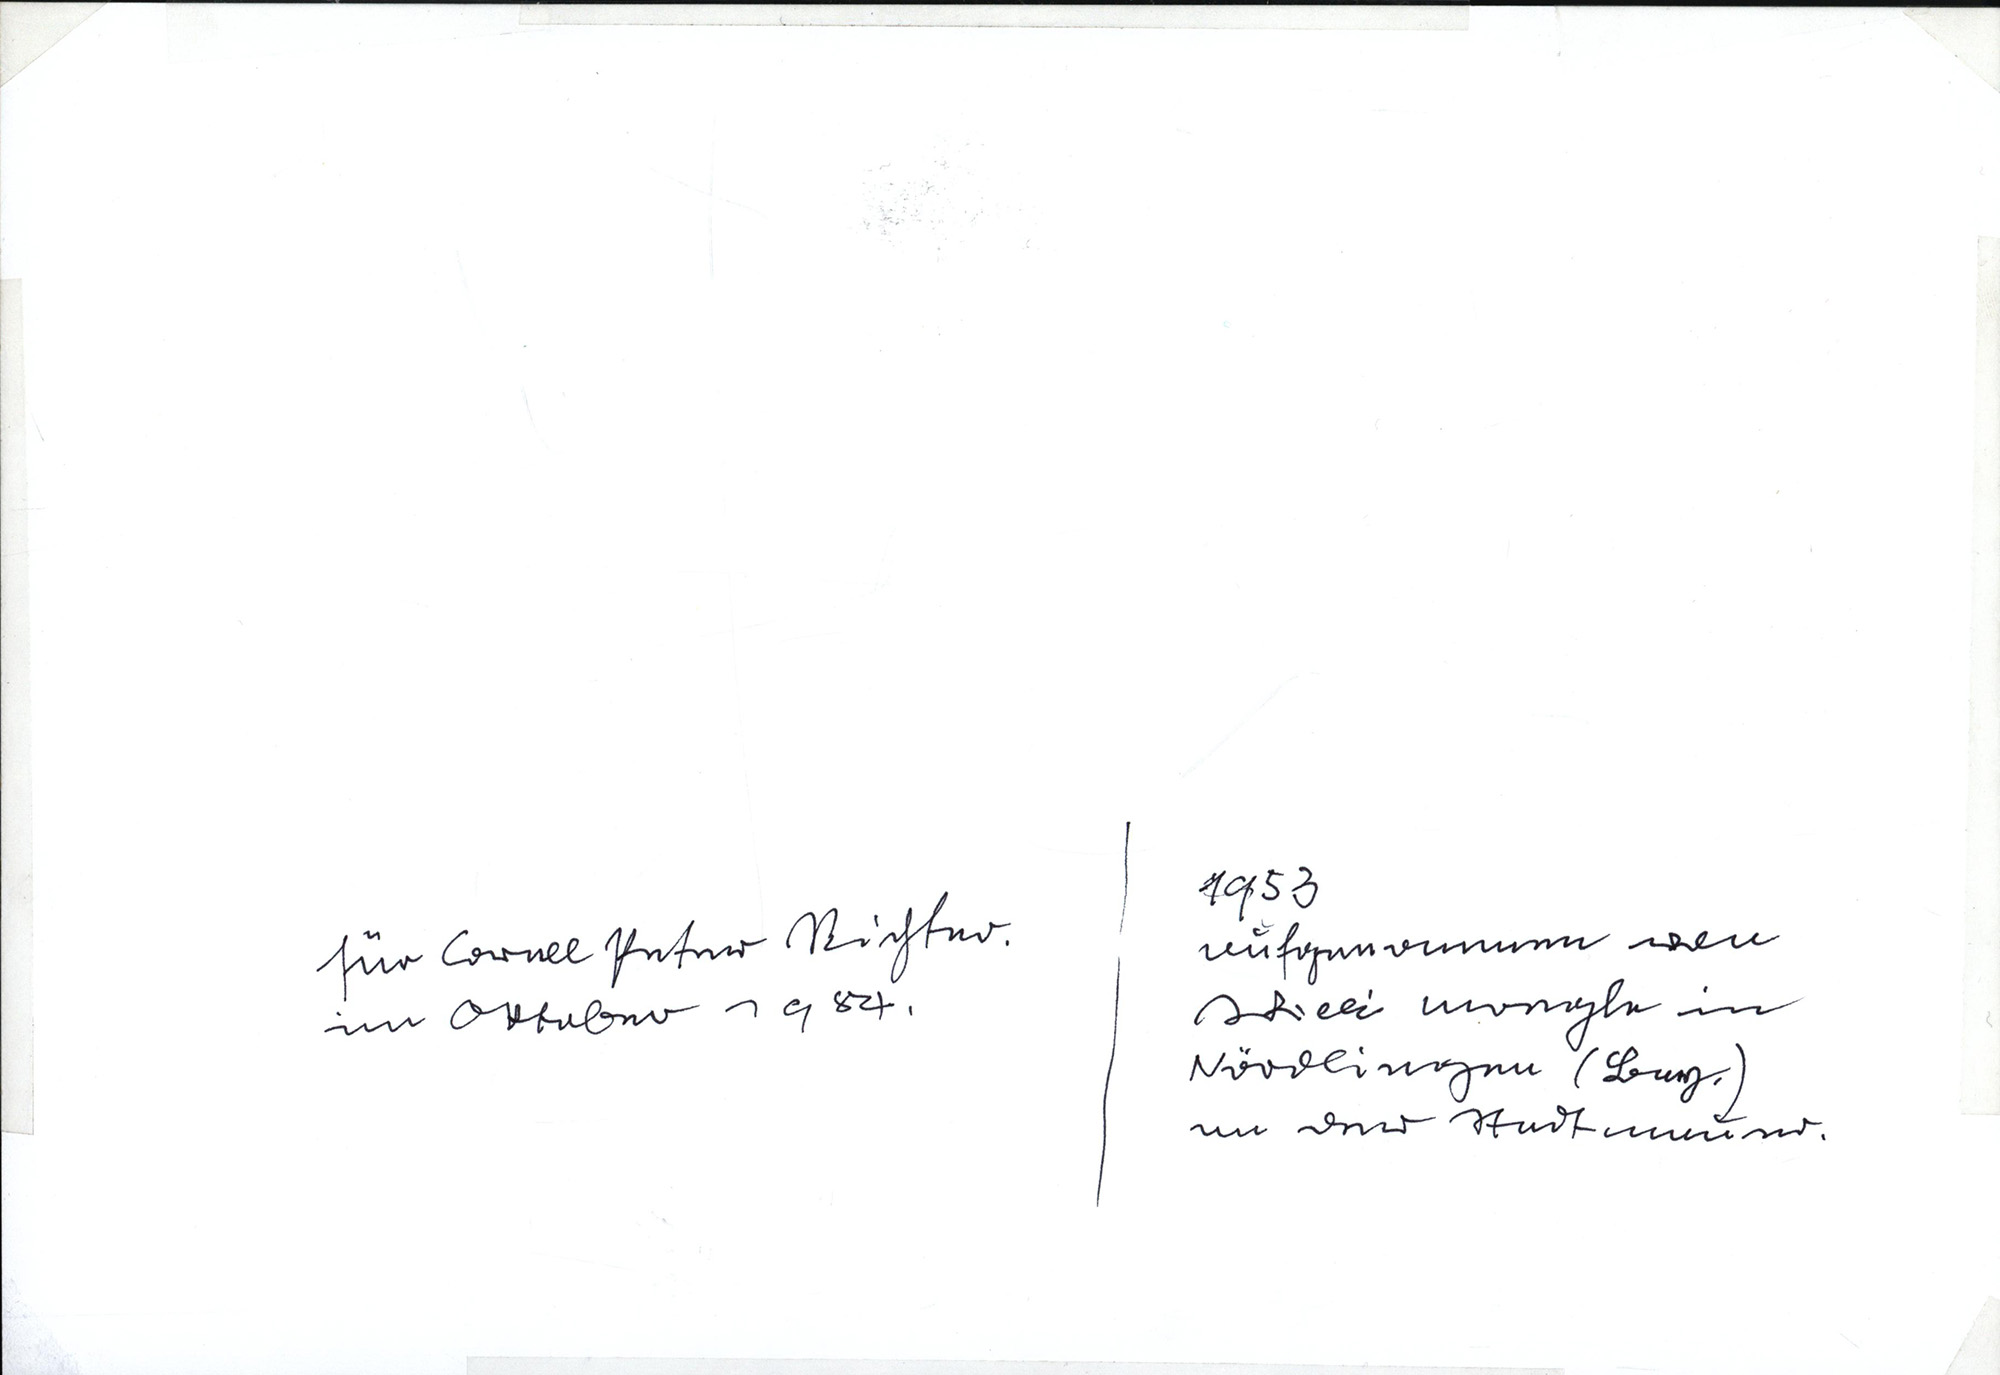 für Cornell Peter Richter.
im Oktober 1984.
1953
aufgenommen von
in
Nördlingen (Bay.)
an der Stadtmauer.